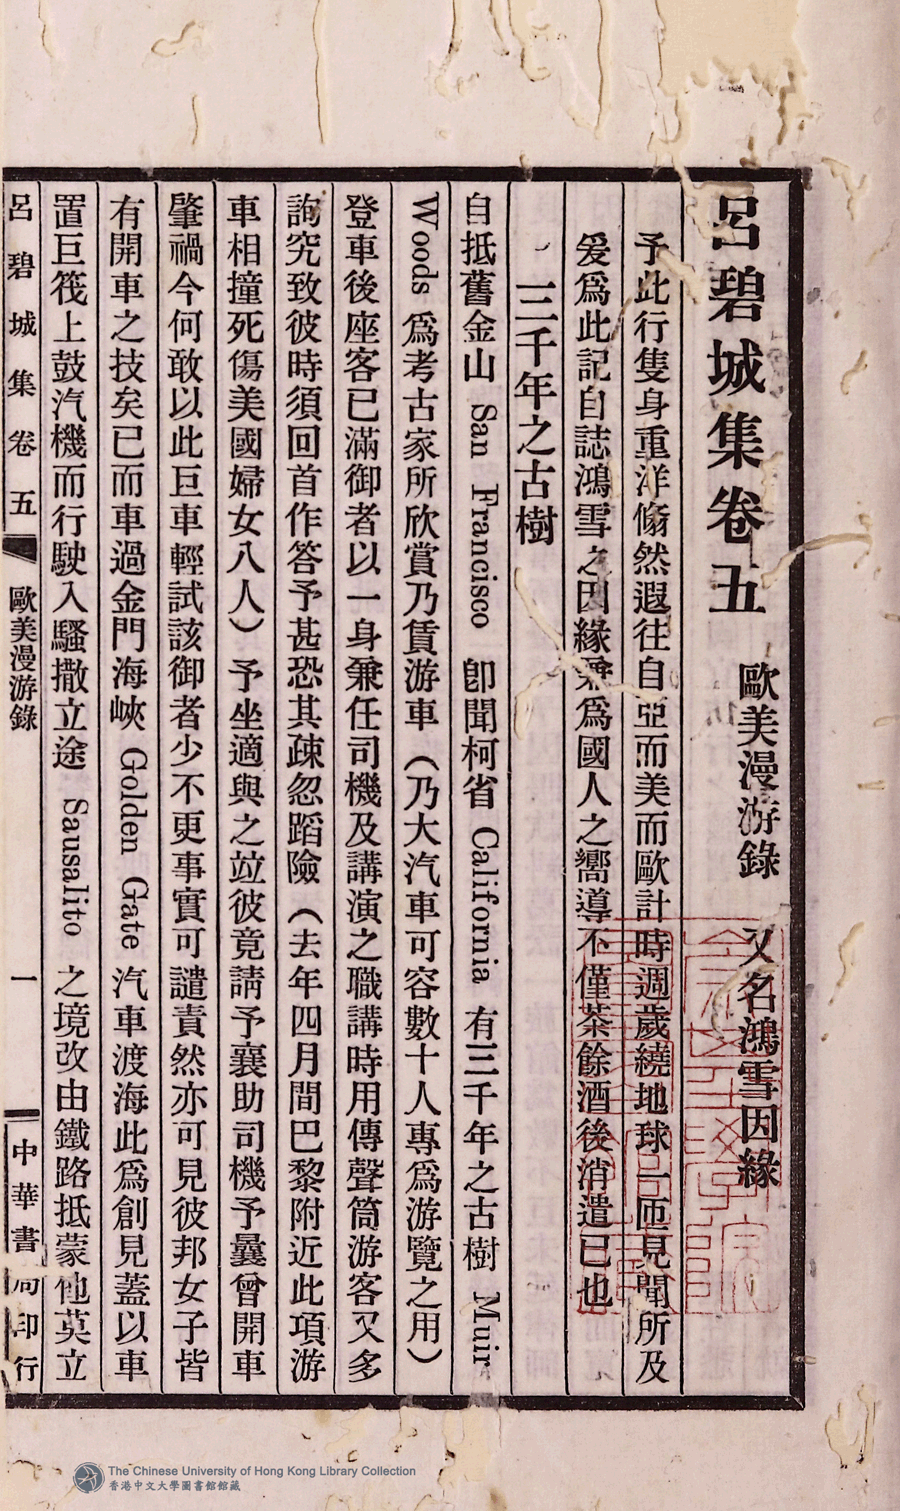 呂碧城集卷五 歐美漫游錄 又名鴻雪因緣
予此行隻身重洋翛然遐往自亞而美而歐計時週歲繞地球一匝見聞所及
爰爲此記自誌鴻雪之因緣兼爲國人之嚮導不僅茶餘酒後消遣已也
三千年之古樹
自抵舊金山 San Francisco 卽聞柯省 California 有三千年之古樹 Muir
Woods 爲考古家所欣賞乃賃游車（乃大汽車可容數十人專爲游覽之用）
登車後座客已滿御者以一身兼任司機及講演之職講時用傳聲筒游客又多
詢究致彼時須回首作答予甚恐其疎忽蹈險（去年四月間巴黎附近此項游
車相撞死傷美國婦女八人）予坐適與之竝彼竟請予襄助司機予曩曾開車
肇禍今何敢以此巨車輕試該御者少不更事實可譴責然亦可見彼邦女子皆
有開車之技矣已而車過金門海峽 Golden Gate 汽車渡海此爲創見蓋以車
置巨筏上鼓汽機而行駛入騷撒立途 Sausalito 之境改由鐵路抵蒙他莫立
呂碧城集卷五 歐美漫游錄 一 中華書局印行
The Chinese University of Hong Kong Library Collection
香港中文大學圖書館館藏